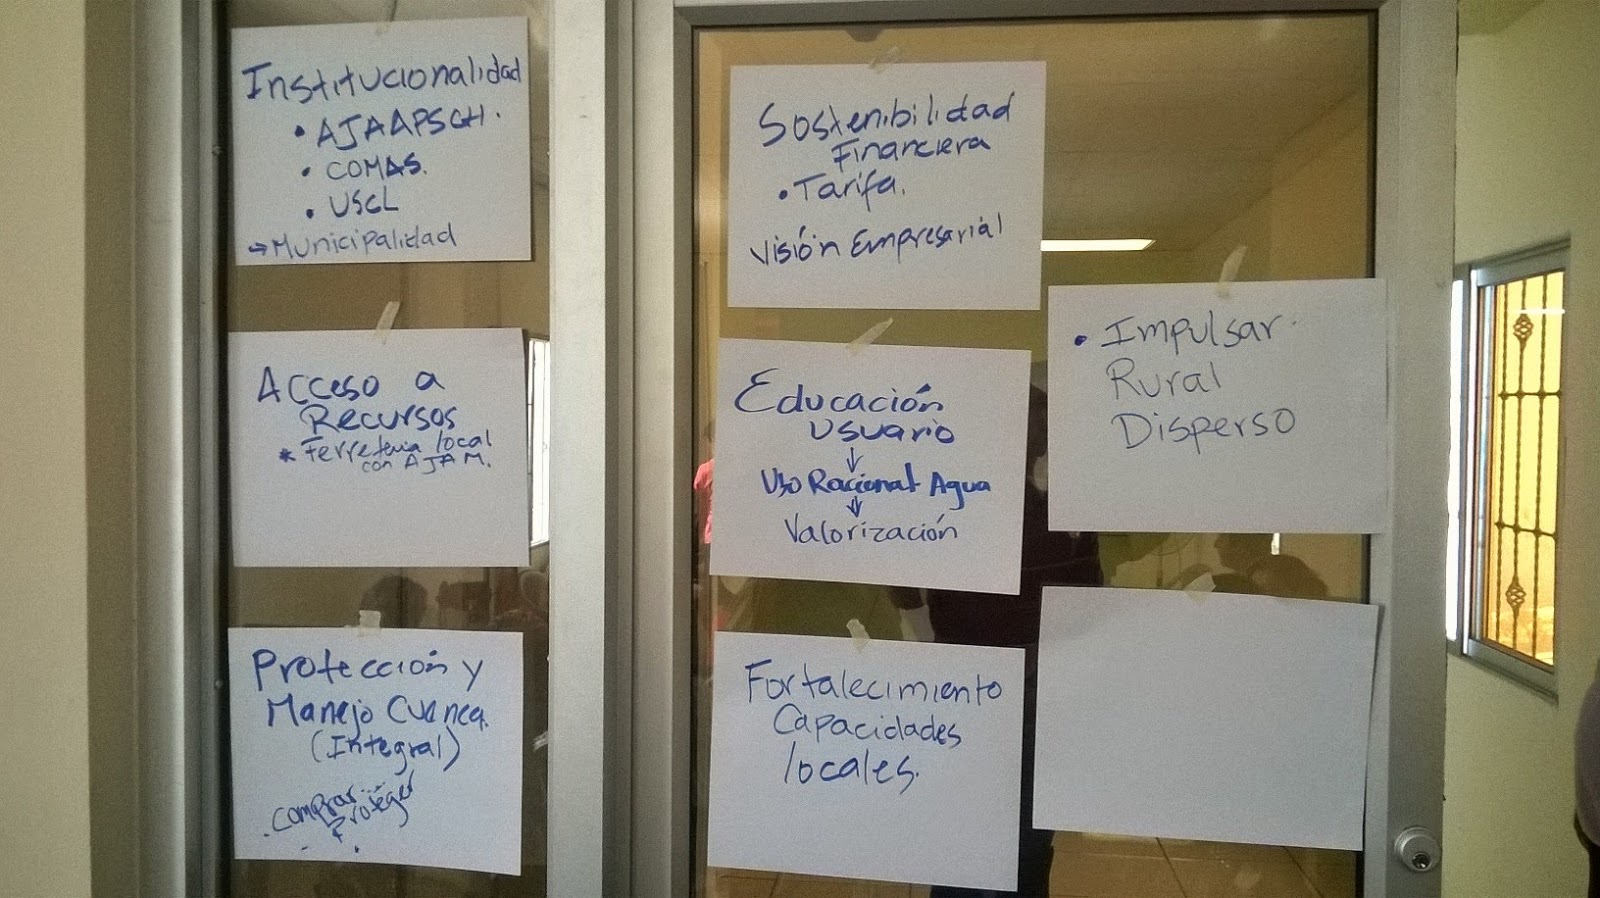 Institucionalidad
• AJAAPSCH.
• COMAS.
• USCL
→ Municipalidad
Acceso a
Recursos
* Ferreteria local
con AJAM.
Protección y
Manejo Cuenca.
(Integral)
. Comprar...
Proteger
Sostenibilidad
Financiera
• Tarifa.
Visión Empresarial
Educación
usuario
↓
Uso Racional Agua
↓
Valorización
Fortalecimiento
Capacidades
locales.
• Impulsar.
Rural
Disperso